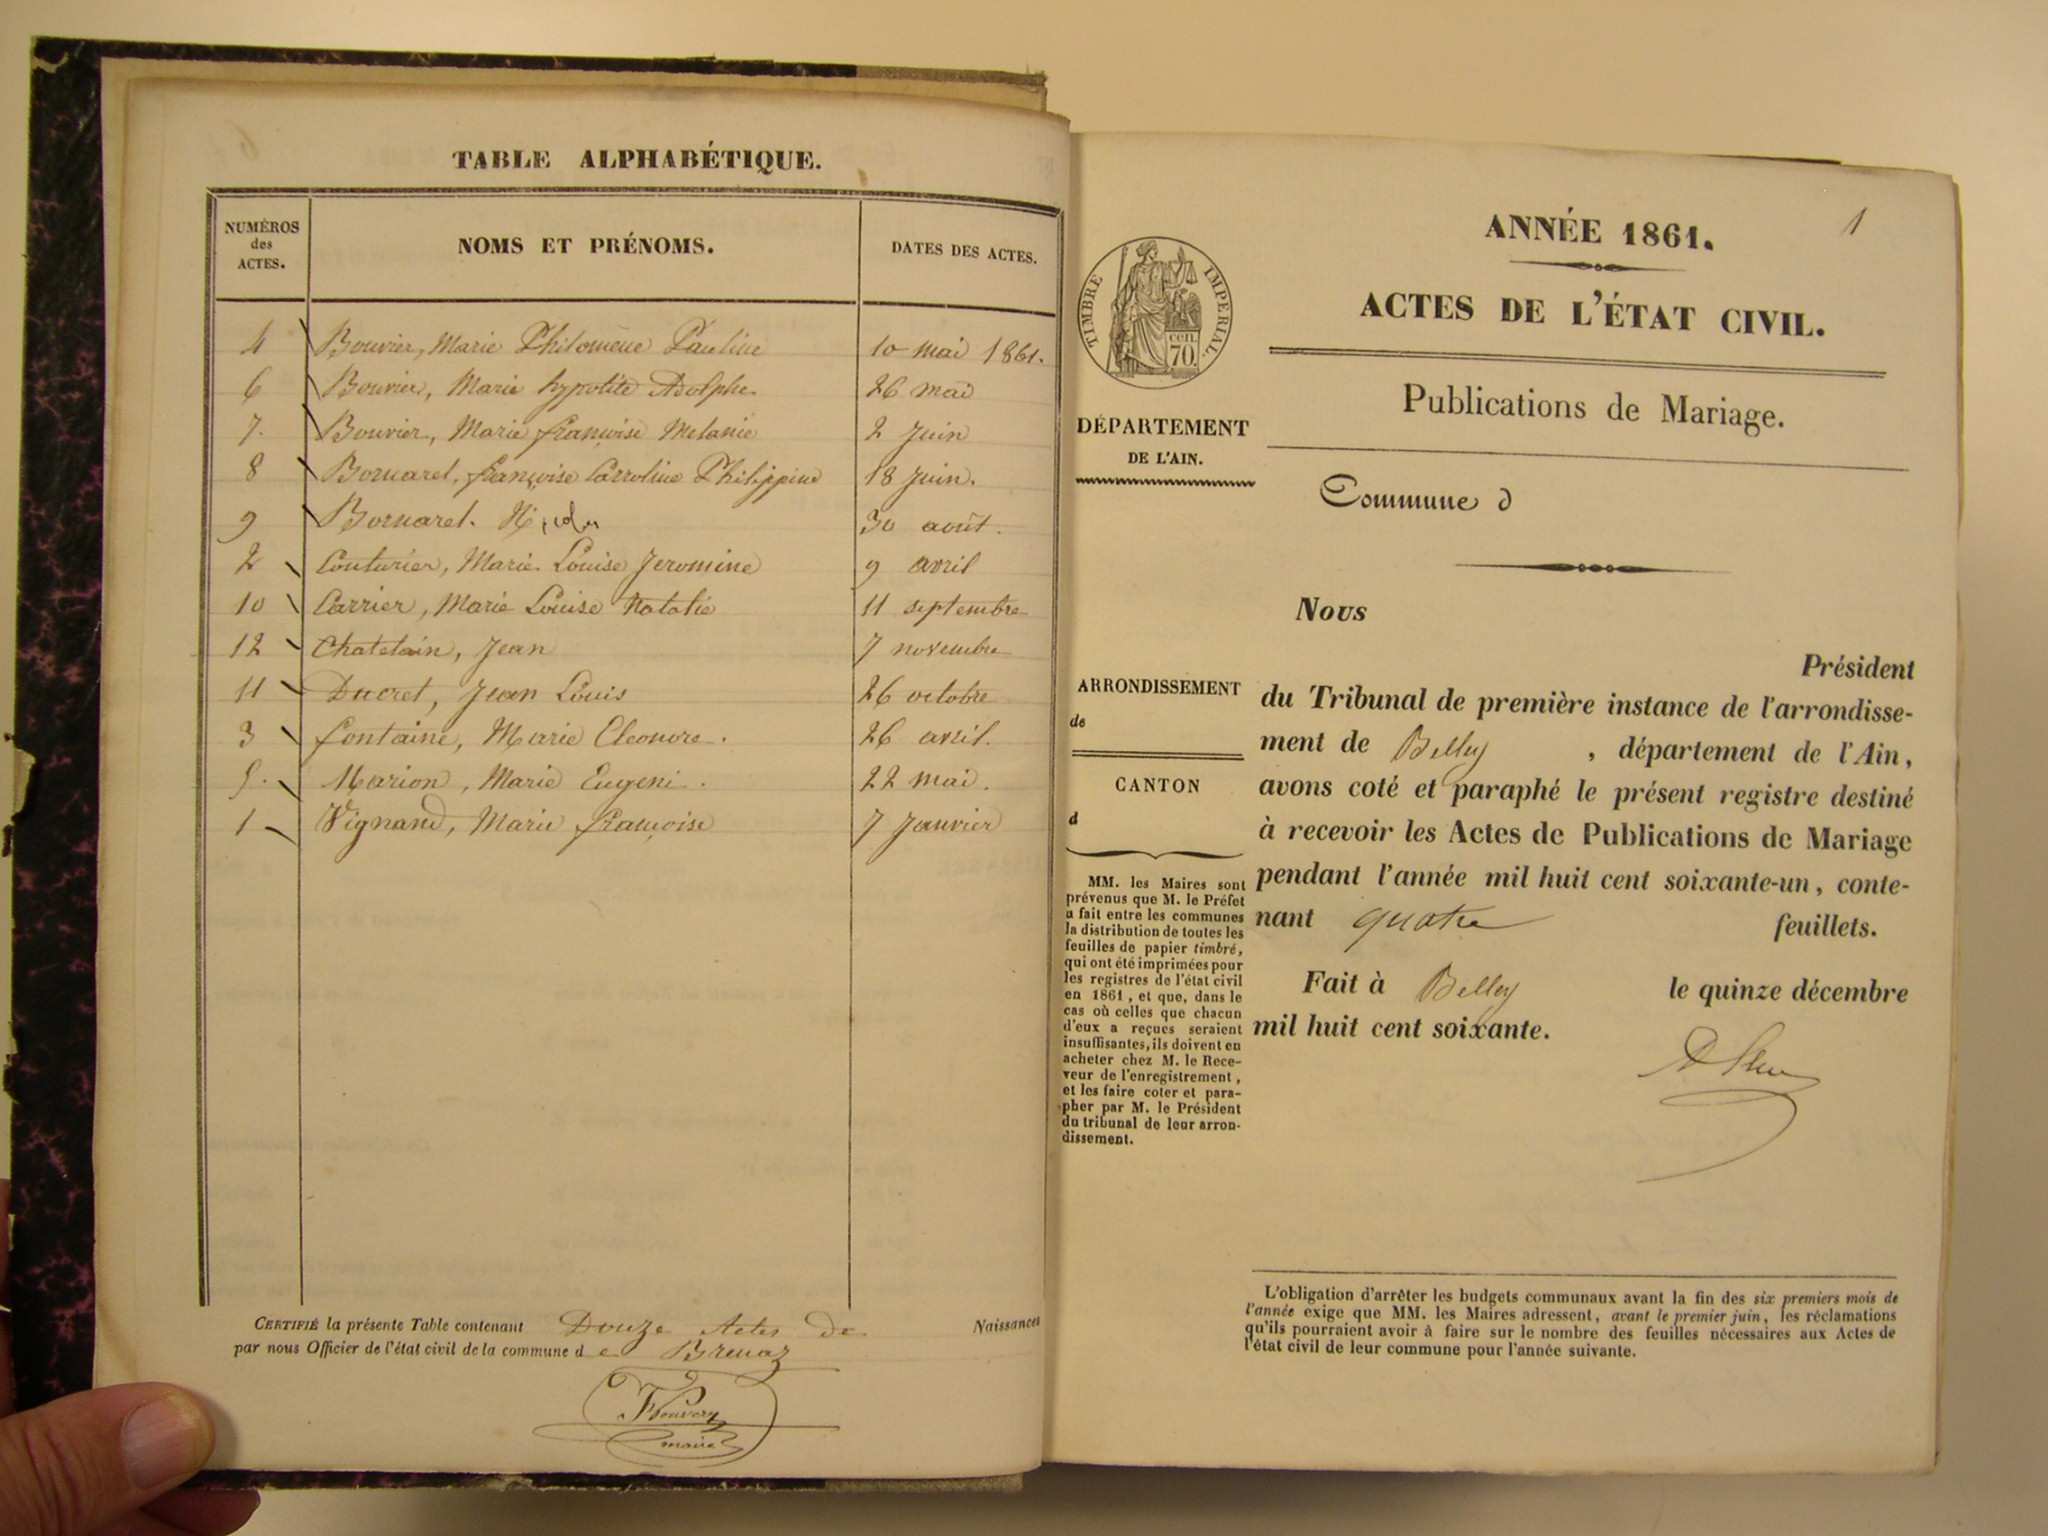 TABLE ALPHABÉTIQUE.
NUMÉROS des ACTES. NOMS ET PRÉNOMS. DATES DES ACTES.
4 Bouvier, Marie Philomène Pauline 10 mai 1861.
6 Bouvier, Marie hypolite Adolphe 26 mai
7. Bouvier, Marie françoise Melanie 2 Juin
8 Bornarel, françoise Carroline Philippine 18 Juin.
9 Bornarel. 30 août.
2 Couturier, Marie Louise Jeromine 9 avril
10 Carrier, Marie Louise Natalie 11 septembre
12 Chatelain, Jean 7 novembre
11 Ducret, Jean Louis 26 octobre
3 fontaine, Marie Eleonore. 26 avril.
5. Marion, Marie Eugeni. 22 mai.
1 Vignand, Marie françoise 7 Janvier
CERTIFIÉ la présente Table contenant Douze Actes de Naissances
par nous Officier de l'état civil de la commune d e Brenaz
maire
1
ANNÉE 1861.
ACTES DE L'ÉTAT CIVIL.
Publications de Mariage.
Commune d
TIMBRE IMPÉRIAL.
cen. 70.
DÉPARTEMENT
DE L'AIN.
ARRONDISSEMENT
de
CANTON
d
MM. les Maires sont
prévenus que M. le Préfet
a fait entre les communes
la distribution de toutes les
feuilles de papier timbré,
qui ont été imprimées pour
les registres de l'état civil
en 1861, et que, dans le
cas où celles que chacun
d'eux a reçues seraient
insuffisantes, ils doivent en
acheter chez M. le Rece-
veur de l'enregistrement,
et les faire coter et para-
pher par M. le Président
du tribunal de leur arron-
dissement.
Nous
Président
du Tribunal de première instance de l'arrondisse-
ment de Belley , département de l'Ain,
avons coté et paraphé le présent registre destiné
à recevoir les Actes de Publications de Mariage
pendant l'année mil huit cent soixante-un, conte-
nant quatre feuillets.
Fait à Belley le quinze décembre
mil huit cent soixante.
L'obligation d'arrêter les budgets communaux avant la fin des six premiers mois de
l'année exige que MM. les Maires adressent, avant le premier juin, les réclamations
qu'ils pourraient avoir à faire sur le nombre des feuilles nécessaires aux Actes de
l'état civil de leur commune pour l'année suivante.